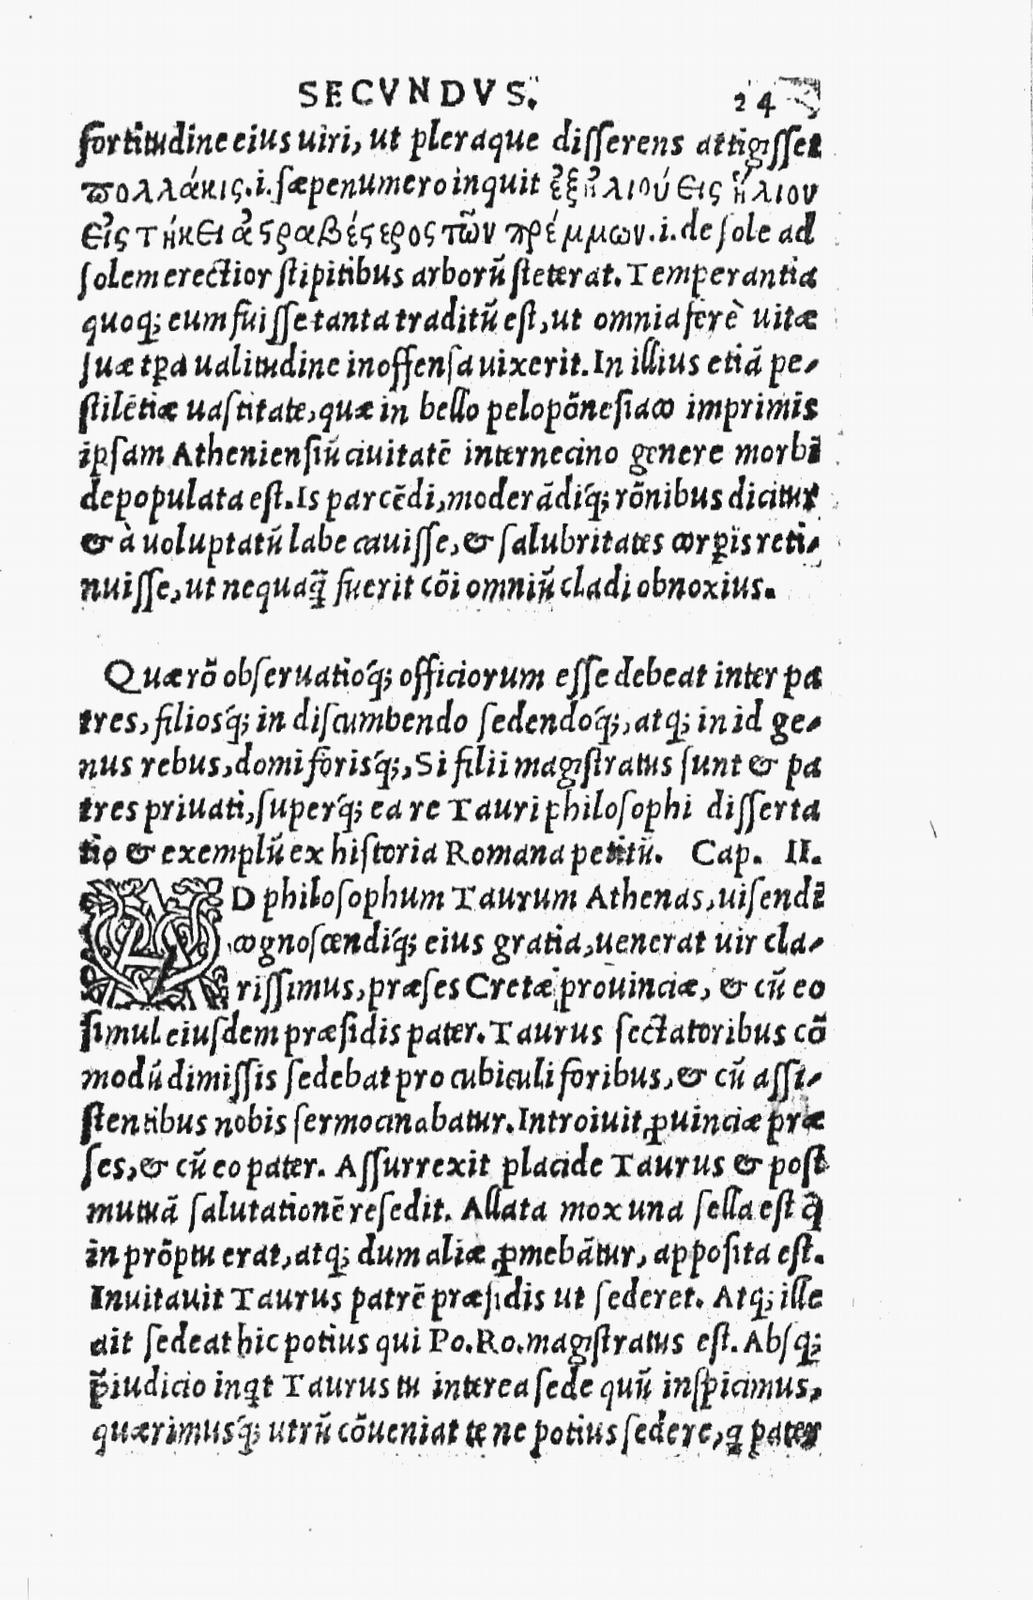 SECVNDVS. 24
fortitudine eius uiri, ut pleraque disserens attigisset
πολλάκις .i. sæpenumero inquit ἐξ ἡλιού εις ἥλιον
εἱςτήκει ἀςραβέςερος τῶν πρέμμων .i. de sole ad
solem erectior stipitibus arborū steterat. Temperantia
quoq; eum fuisse tanta traditū est, ut omnia ferè uitæ
suæ tꝑa ualitudine inoffensa uixerit. In illius etiã pe-
stilētiæ uastitate, quæ in bello pelopõnesiaco imprimis
ipsam Atheniensiū ciuitatē internecino genere morbi
depopulata est. Is parcēdi, moderãdiq́; rõnibus dicitur
& à uoluptatū labe cauisse, & salubritates corꝑis reti-
nuisse, ut nequaq̃ fuerit cõi omniū cladi obnoxius.
Quæ rõ obseruatioq́; officiorum esse debeat inter pa
tres, filiosq́; in discumbendo sedendoq́;, atq; in id ge-
nus rebus, domi forisq́;, Si filii magistratus sunt & pa
tres priuati, superq́; ea re Tauri philosophi disserta
tio & exemplū ex historia Romana petitū. Cap. II.
AD philosophum Taurum Athenas, uisendi
cognoscendiq́; eius gratia, uenerat uir cla-
rissimus, præses Cretæ prouinciæ, & cū eo
simul eiusdem præsidis pater. Taurus sectatoribus cõ
modū dimissis sedebat pro cubiculi foribus, & cū assi-
stentibus nobis sermocinabatur. Introiuit ꝓuinciæ præ
ses, & cū eo pater. Assurrexit placide Taurus & post
mutuã salutationē resedit. Allata mox una sella est q̃
in prõptu erat, atq; dum aliæ ꝓmebãtur, apposita est.
Inuitauit Taurus patrē præsidis ut sederet. Atq; ille
ait sedeat hic potius qui Po. Ro. magistratus est. Absq;
p̃iudicio inqt Taurus tu interea sede quū inspicimus,
quærimusq́; utrū cõueniat te ne potius sedere, q pater